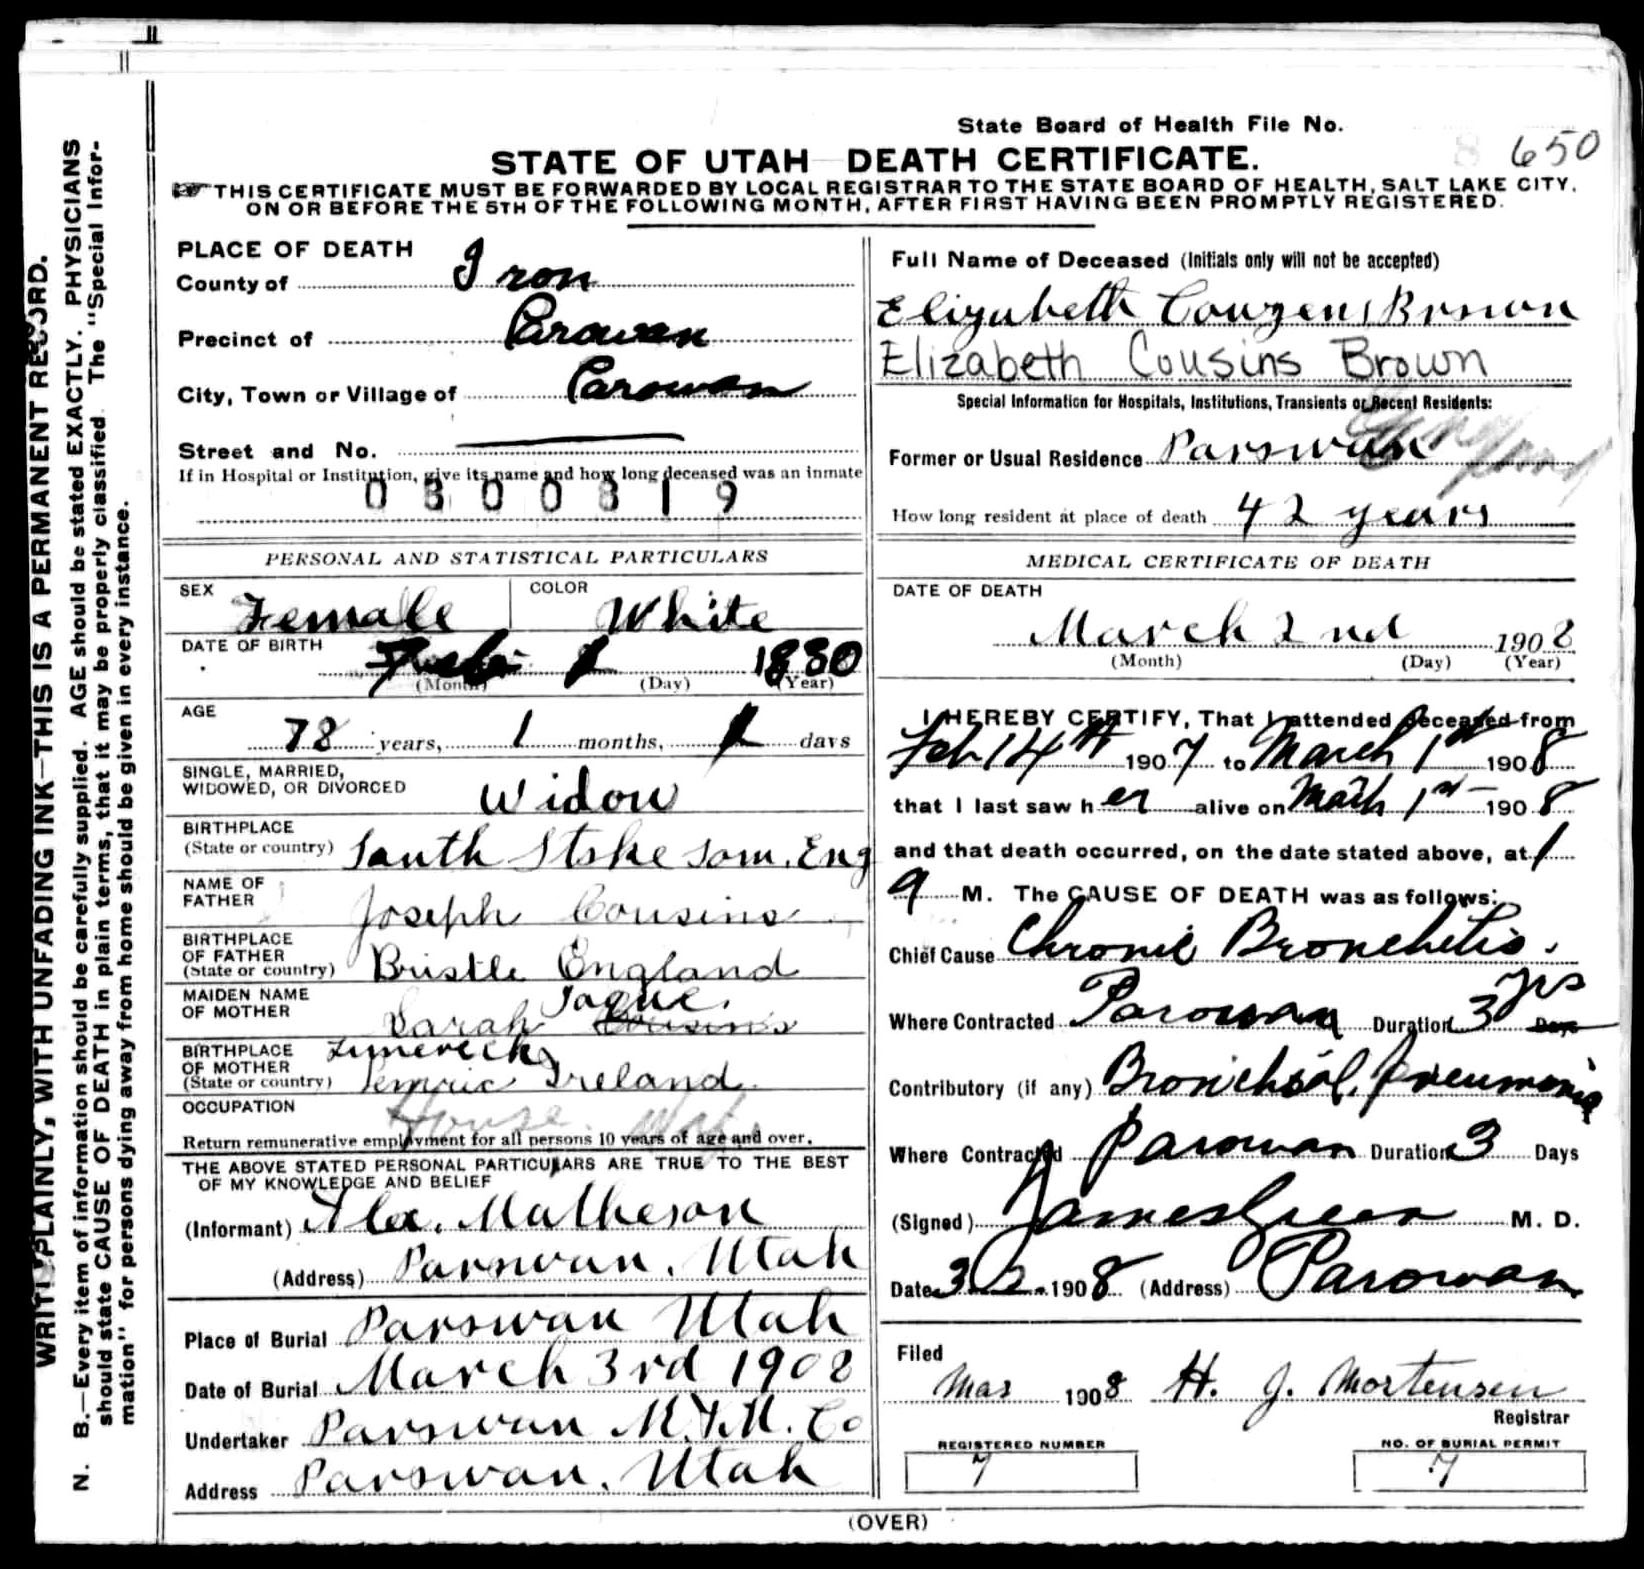 State Board of Health File No.
8 650
STATE OF UTAH DEATH CERTIFICATE.
THIS CERTIFICATE MUST BE FORWARDED BY LOCAL REGISTRAR TO THE STATE BOARD OF HEALTH, SALT LAKE CITY,
ON OR BEFORE THE 5TH OF THE FOLLOWING MONTH, AFTER FIRST HAVING BEEN PROMPTLY REGISTERED.
WRITE PLAINLY, WITH UNFADING INK—THIS IS A PERMANENT RECORD.
N. B.—Every item of information should be carefully supplied. AGE should be stated EXACTLY. PHYSICIANS
should state CAUSE OF DEATH in plain terms, that it may be properly classified. The "Special Infor-
mation" for persons dying away from home should be given in every instance.
PLACE OF DEATH
County of Iron
Precinct of Parowan
City, Town or Village of Parowan
Street and No.
If in Hospital or Institution, give its name and how long deceased was an inmate
0300819
PERSONAL AND STATISTICAL PARTICULARS
SEX Female COLOR White
DATE OF BIRTH 1830
(Month) (Day) (Year)
AGE
78 years, 1 months, 1 days
SINGLE, MARRIED,
WIDOWED, OR DIVORCED Widow
BIRTHPLACE
(State or country) South Stoke Som. Eng
NAME OF
FATHER Joseph Cousins
BIRTHPLACE
OF FATHER
(State or country) Bristle England
MAIDEN NAME
OF MOTHER Sarah Cousins Tague.
BIRTHPLACE Limerick
OF MOTHER
(State or country) Lemric Ireland
OCCUPATION House Wife
Return remunerative employment for all persons 10 years of age and over.
THE ABOVE STATED PERSONAL PARTICULARS ARE TRUE TO THE BEST
OF MY KNOWLEDGE AND BELIEF
(Informant) Alex. Matheson
(Address) Parowan, Utah
Place of Burial Parowan Utah
Date of Burial March 3rd 1908
Undertaker Parowan M. & M. Co
Address Parowan, Utah
Full Name of Deceased (Initials only will not be accepted)
Elizabeth Couzens Brown
Elizabeth Cousins Brown
Special Information for Hospitals, Institutions, Transients or Recent Residents:
Former or Usual Residence Parowan
How long resident at place of death 42 years
MEDICAL CERTIFICATE OF DEATH
DATE OF DEATH
March 2nd 1908
(Month) (Day) (Year)
I HEREBY CERTIFY, That I attended deceased from
Feb 14th 1907 to March 1st 1908
that I last saw her alive on March 1st 1908
and that death occurred, on the date stated above, at 1
a M. The CAUSE OF DEATH was as follows:
Chief Cause Chronic Bronchitis.
Where Contracted Parowan Duration 3 yrs Days
Contributory (if any) Bronchial pneumonia
Where Contracted Parowan Duration 3 Days
(Signed) James Green M. D.
Date 3-2-1908 (Address) Parowan
Filed
Mar 1908 H. J. Mortensen
Registrar
REGISTERED NUMBER
7
NO. OF BURIAL PERMIT
7
(OVER)